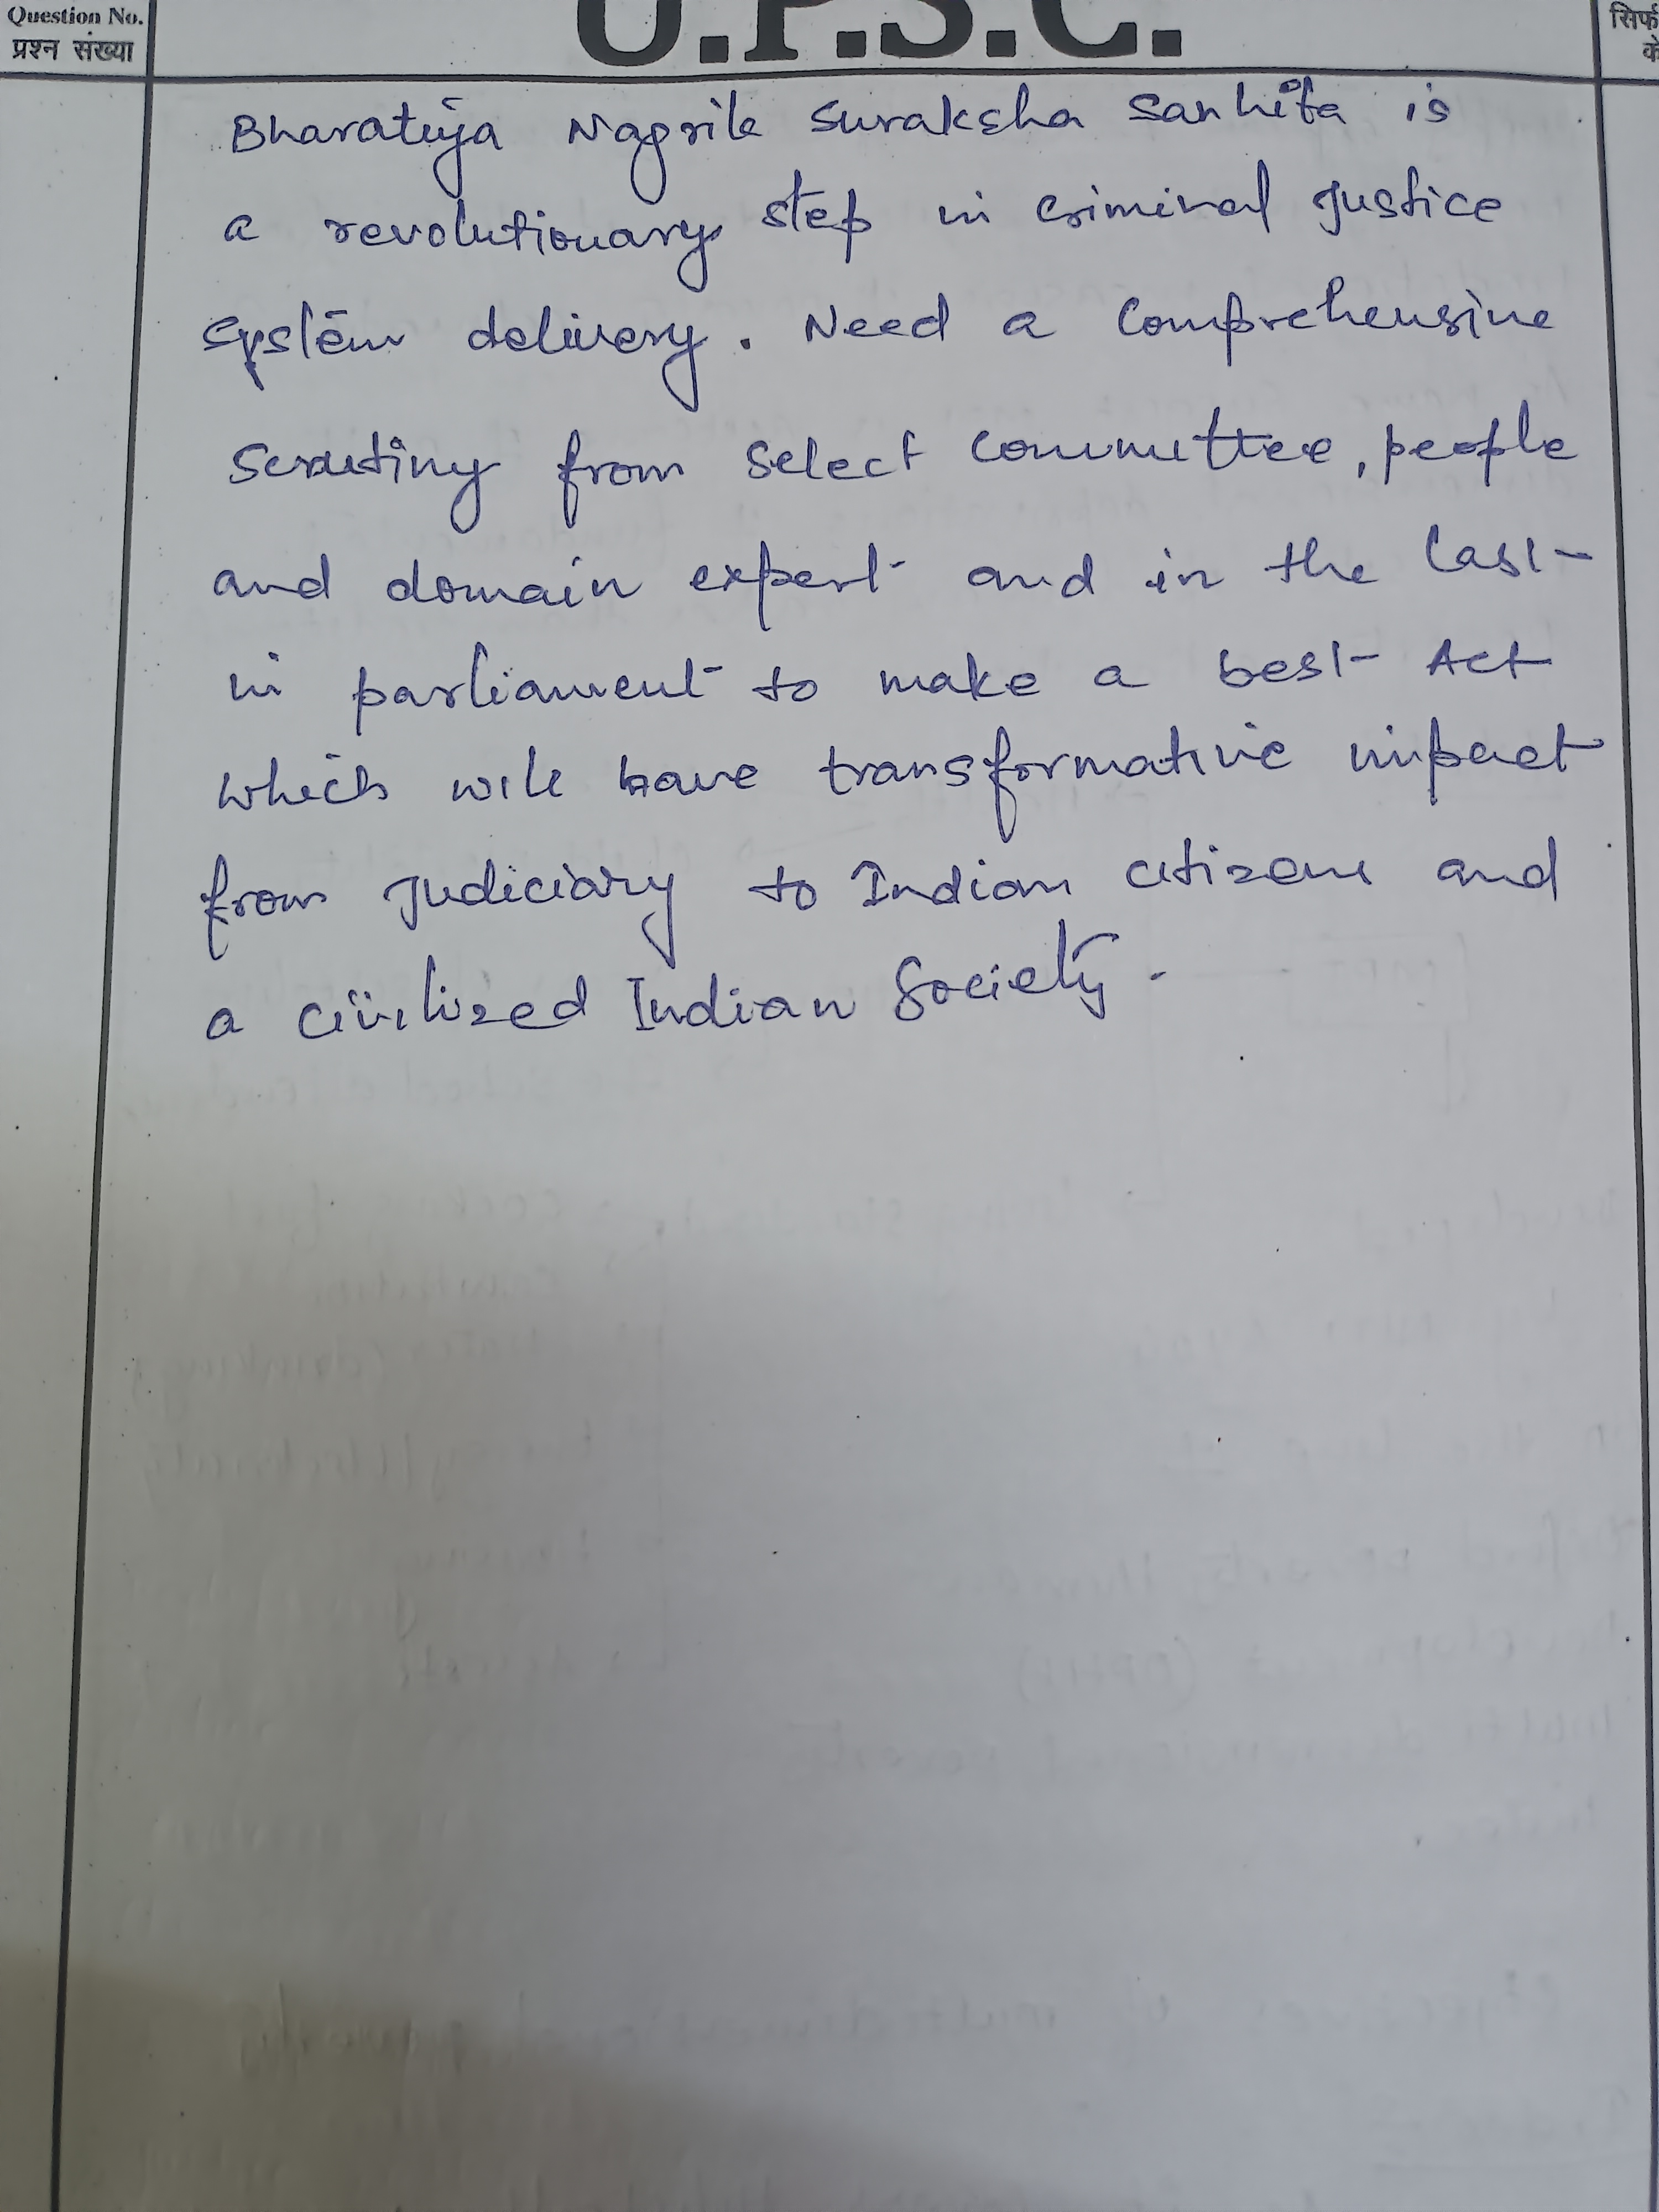 Question No.
प्रश्न संख्या
U.P.S.C.
सिर्फ
के
Bharatiya Nagrik Suraksha Sanhita is
a revolutionary step in criminal Justice
system delivery. Need a comprehensive
Scrutiny from Select Committee, people
and domain expert and in the last
in parliament to make a best Act
which will have transformative impact
from Judiciary to Indian citizens and
a civilized Indian Society.